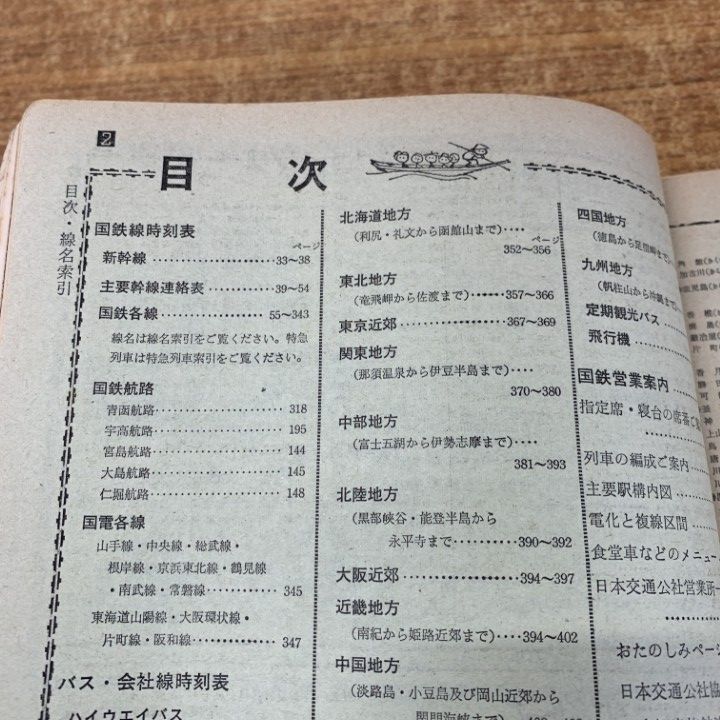 2
目次
目次・線名索引
国鉄線時刻表
ページ
新幹線…………………33~38
主要幹線連絡表………39~54
国鉄各線……………55~343
線名は線名索引をご覧ください。特急
列車は特急列車索引をご覧ください。
国鉄航路
青函航路……………………318
宇高航路……………………195
宮島航路……………………144
大島航路……………………145
仁堀航路……………………148
国電各線
山手線・中央線・総武線・
根岸線・京浜東北線・鶴見線
・南武線・常磐線…………345
東海道山陽線・大阪環状線・
片町線・阪和線……………347
バス・会社線時刻表
ハイウエイバス
北海道地方
(利尻・礼文から函館山まで)‥‥
ページ
352~356
東北地方
(竜飛岬から佐渡まで)……357~366
東京近郊……………367~369
関東地方
(那須温泉から伊豆半島まで)
370~380
中部地方
(富士五湖から伊勢志摩まで)‥‥
381~393
北陸地方
(黒部峡谷・能登半島から
永平寺まで……390~392
大阪近郊……………394~397
近畿地方
(南紀から姫路近郊まで)‥‥394~402
中国地方
(淡路島・小豆島及び岡山近郊から
関門海峡まで)
四国地方
(徳島から足摺岬まで
九州地方
(帆柱山から沖縄まで
定期観光バス
飛行機
国鉄営業案内
指定席・寝台の席番ご案
列車の編成ご案内
主要駅構内図
電化と複線区間
食堂車などのメニュー
日本交通公社営業所一
おたのしみページ
日本交通公社協